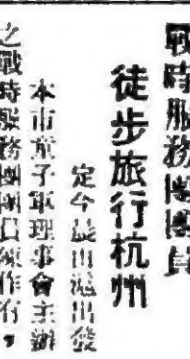 戰時服務團團員
徒步旅行杭州
定今晨由滬出發
本市童子軍理事會主辦
之戰時服務團團員陳作有，